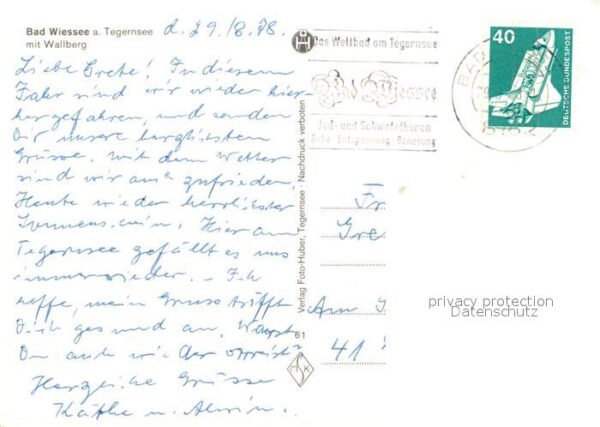 Bad Wiessee a. Tegernsee
mit Wallberg
d. 29./8.78.
Liebe Grete! In diesem
Jahr sind wir wieder hier-
her gefahren, und senden
Dir unsere herzlichsten
Grüsse. Mit dem Wetter
sind wir auch zufrieden,
Heute wieder herrlichster
Sonnenschein, Hier am
Tegernsee gefällt es uns
immer wieder. - Ich
hoffe, mein Gruss trifft
Dich gesund an. Warst
Du auch wieder verreist?
Herzliche Grüsse
Käthe u. Alwin.
Verlag Foto-Huber, Tegernsee · Nachdruck verboten
61
Das Weltbad am Tegernsee
Bad Wiessee
Jod- und Schwefelkuren
Ruhe Entspannung Genesung
BAD
40
DEUTSCHE BUNDESPOST
Fr
Gre
Am
41
privacy protection
Datenschutz